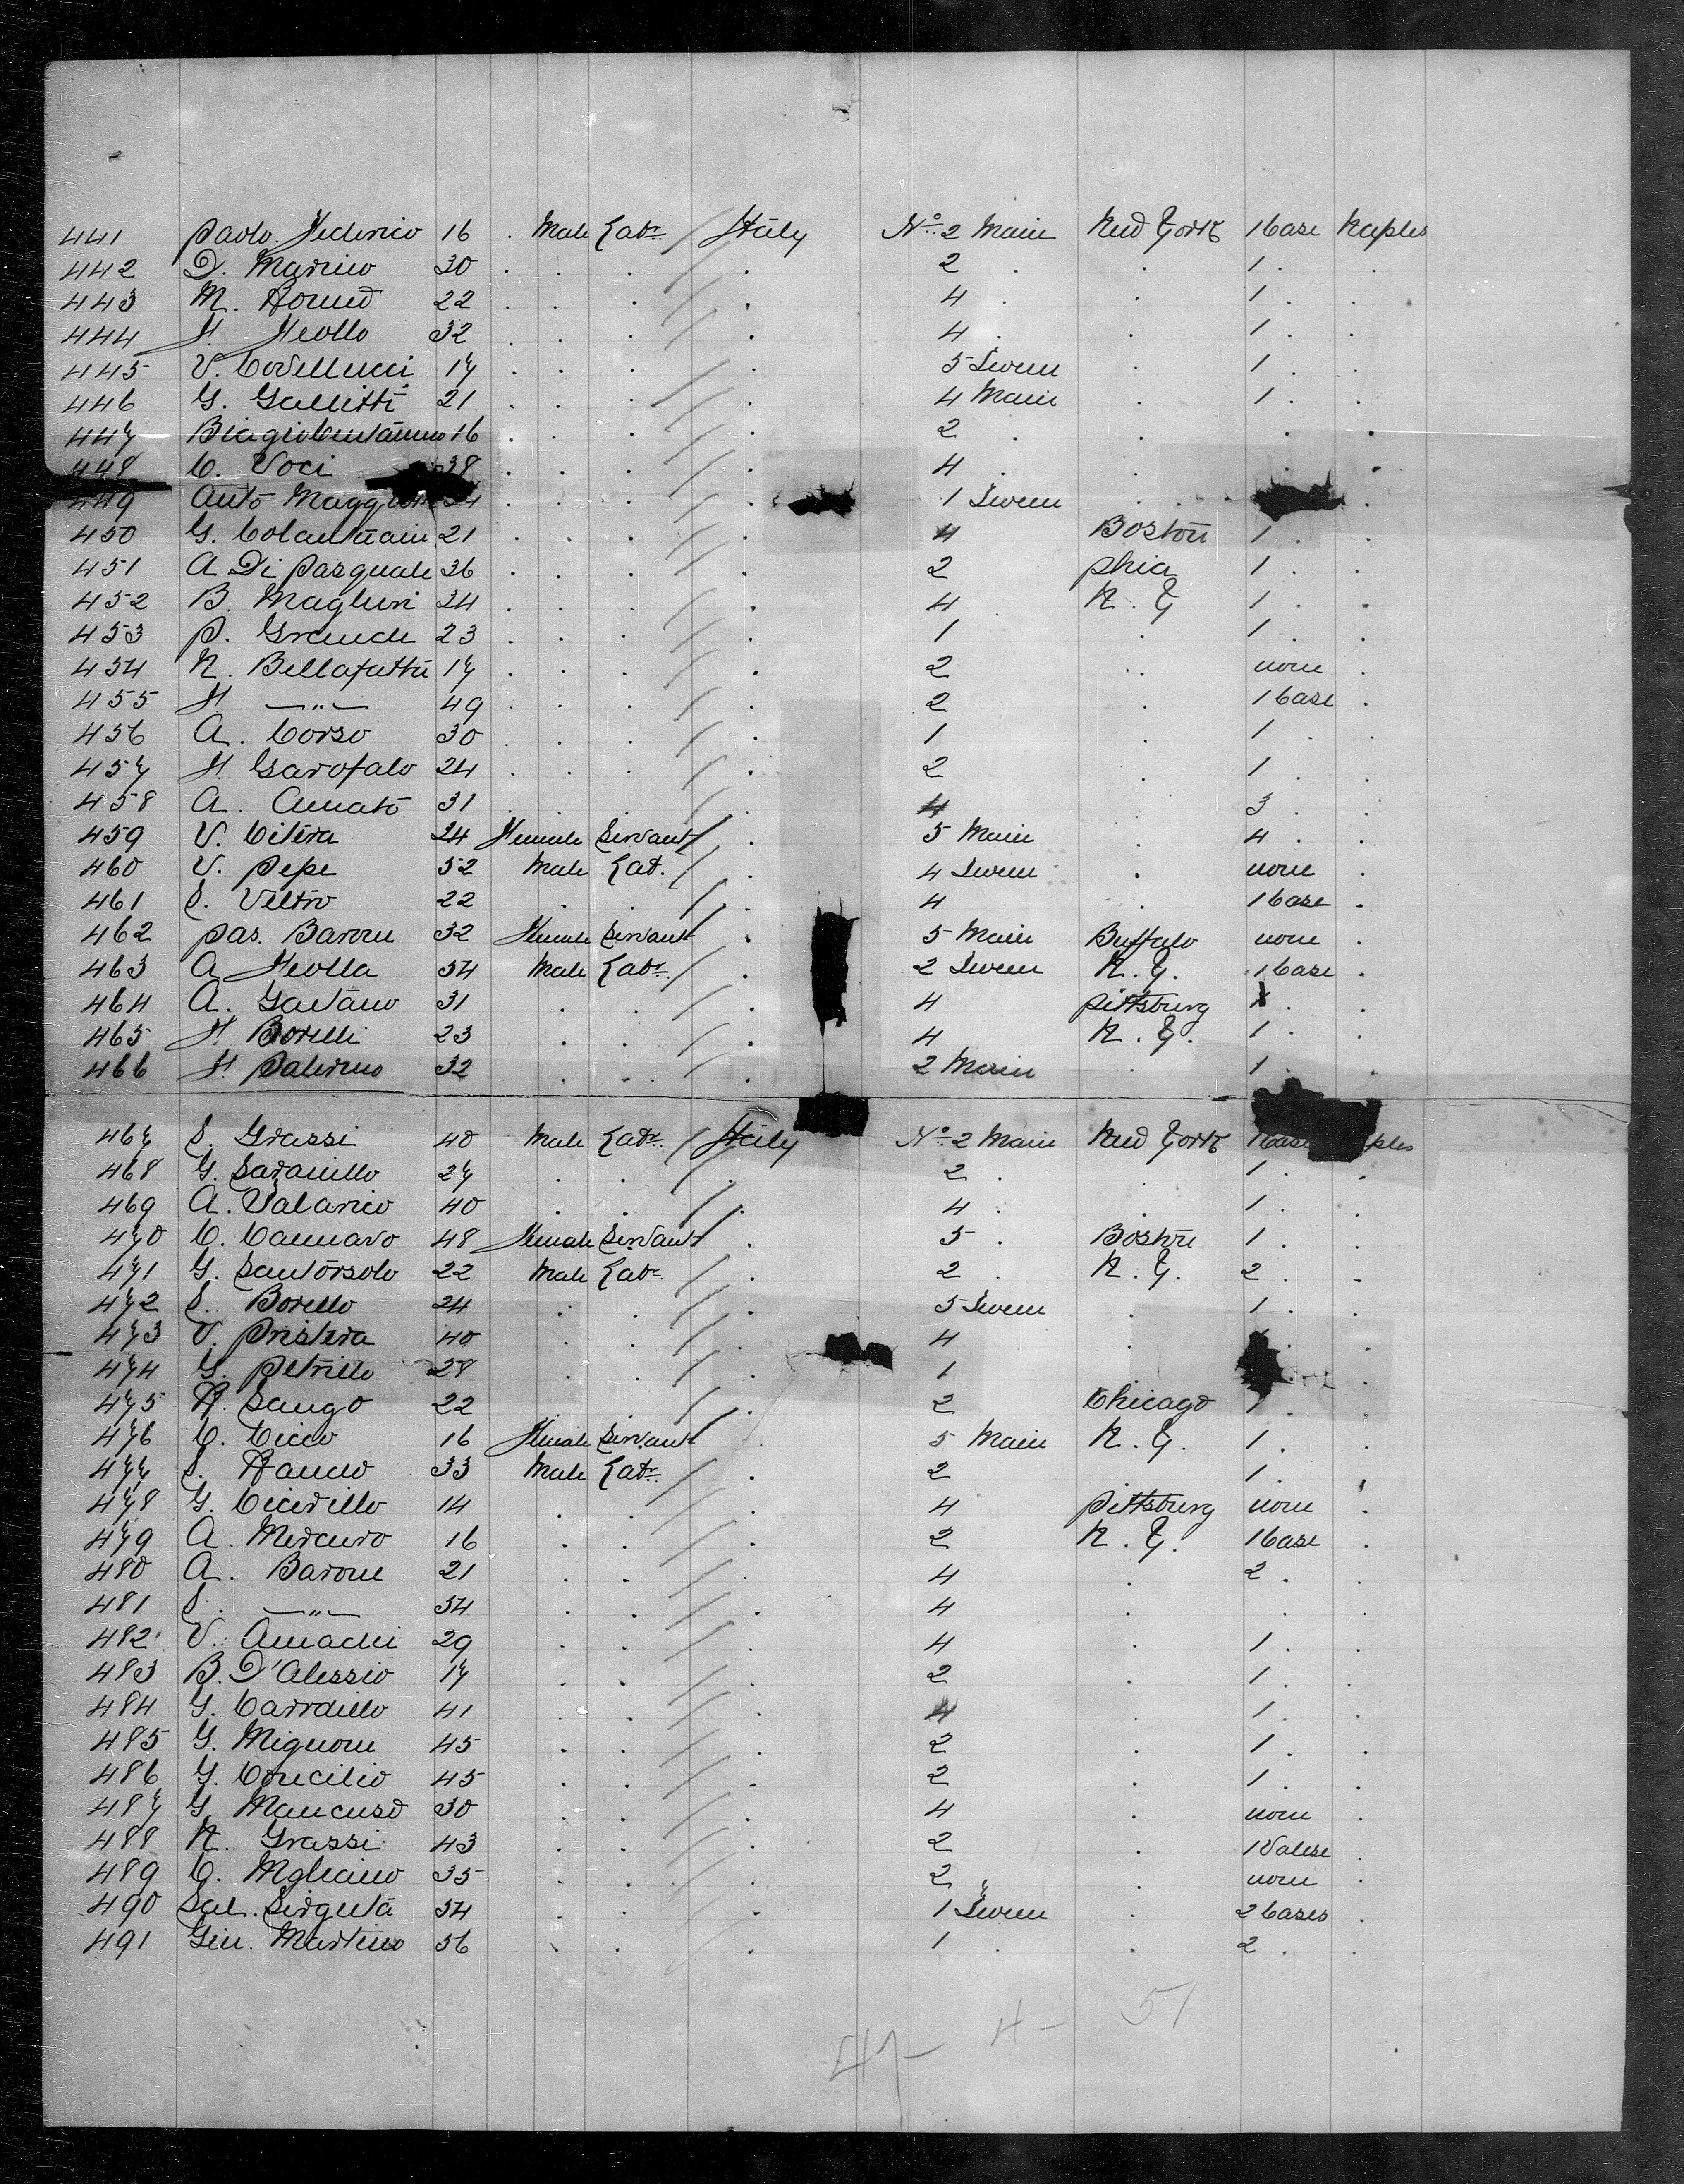 441 Paolo Federico 16 . Male Labr / Italy No. 2 Main New York 1 Case Naples
442 D. Marino 30 . . . / . 2 . . 1 . .
443 M. Romeo 22 . . . / . 4 . . 1 . .
444 F. Fiollo 32 . . . / . 4 . . 1 . .
445 V. Covellucci 17 . . . / . 5 Tween . 1 . .
446 G. Gallitti 21 . . . / . 4 Main . 1 . .
447 Biagio 16 . . . / . 2 . . . .
448 C. Voci 38 . . . / . 4 . . . .
449 Anto 34 . . . / . 1 Tween . . .
450 G. 21 . . . / . 4 Boston 1 . .
451 A Di Pasquale 36 . . . / . 2 Phia 1 . .
452 B. Maglieri 34 . . . / . 4 N. Y 1 . .
453 P. Grande 23 . . . / . 1 . 1 . .
454 N. Bellafatto 17 . . . / . 2 . none .
455 F. —"— 49 . . . / . 2 . 1 Case .
456 A. Corso 30 . . . / . 1 . 1 . .
457 F. Garofalo 24 . . . / . 2 . 1 . .
458 A. Amato 31 . . . / . 4 . 3 . .
459 V. Citera 24 Female Servant / . 5 Main . 4 . .
460 V. Pepe 52 Male Lab. / . 4 Tween . none .
461 S. Veltro 22 . . / . 4 . 1 Case .
462 Pas. Barone 32 Female Servant / . 5 Main Buffalo none .
463 A Fiolla 34 Male Labr / . 2 Tween N. Y. 1 Case .
464 A. Gaetano 31 . . / . 4 Pittsburg 1 . .
465 F. Borelli 23 . . / . 4 N. Y. 1 . .
466 F. Palermo 32 . . / . 2 Main . 1 . .
467 S. Grassi 40 Male Labr / Italy No. 2 Main New York 1 Case ples
468 G. Saraniello 27 . . / . 2 . . 1 . .
469 A. Talarico 40 . . / . 4 . . 1 . .
470 C. Cannavo 48 Female Servant / . 5 . Boston 1 . .
471 G. Santorsolo 22 Male Labr / . 2 . N. Y. 2 . .
472 S. Borello 24 . . / . 5 Tween . 1 . .
473 V. Pristera 40 . . / . 4 . . .
474 G. Petrillo 28 . . / . 1 . . .
475 R. Sango 22 . . / . 2 Chicago 1 . .
476 C. Cicco 16 Female Servant / . 5 Main N. Y. 1 . .
477 S. Rando 33 Male Labr / . 2 . 1 . .
478 G. Cicirillo 14 . . / . 4 Pittsburg none .
479 A. Mercuro 16 . . / . 2 N. Y. 1 Case .
480 A. Barone 21 . . / . 4 . 2 . .
481 S. —"— 34 . . / . 4 . . .
482 V. Amadei 29 . . / . 4 . 1 . .
483 B. D'Alessio 17 . . / . 2 . 1 . .
484 G. Carrdillo 41 . . / . 4 . 1 . .
485 G. Mignone 45 . . / . 2 . 1 . .
486 G. Concilio 45 . . / . 2 . 1 . .
487 G. Mancuso 30 . . / . 4 . none .
488 N. Grassi 43 . . / . 2 . 1 Valise .
489 C. Migliano 35 . . / . 2 . none .
490 Sal. Sirguta 34 . . / . 1 Tween . 2 Cases .
491 Gen. Martino 36 . . / . 1 . . 2 . .
47 - 4 - 51